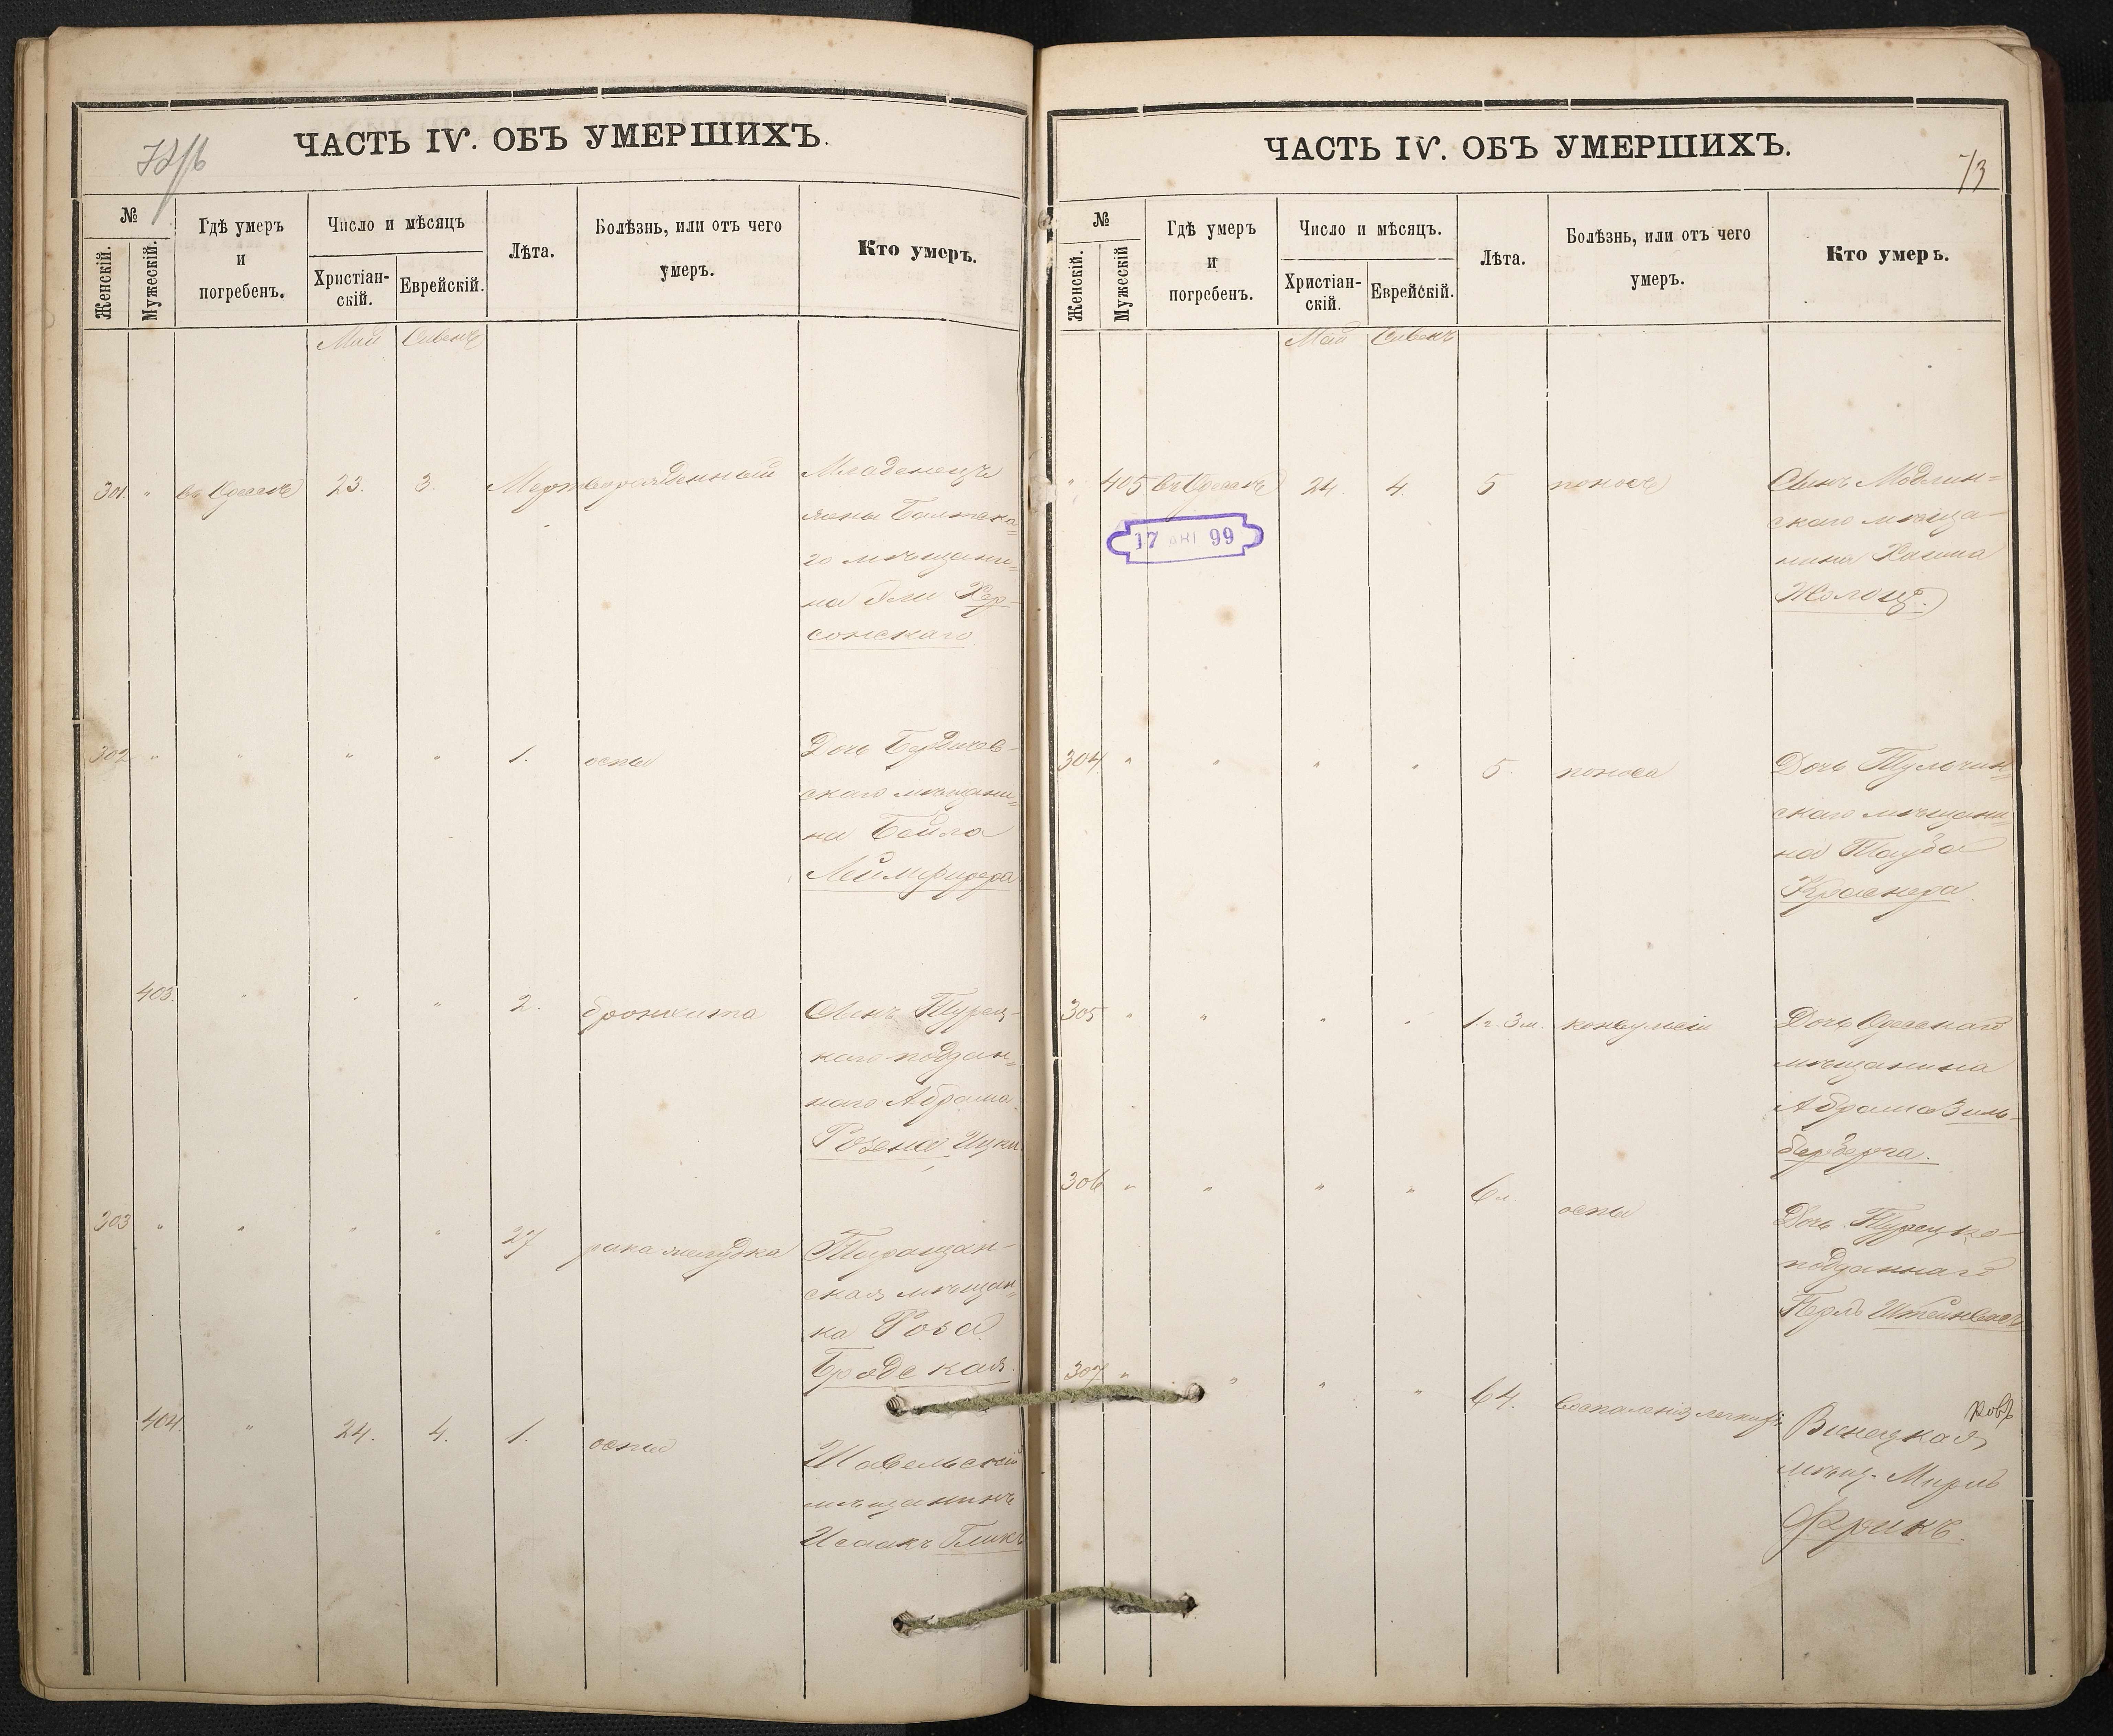 ЧАСТЬ IV. ОБЪ УМЕРШИХЪ.
№
Женскій.
Мужескій.
Гдѣ умеръ
и
погребенъ.
Число и мѣсяцъ
Христіан-
скій.
Еврейскій.
Лѣта.
Болѣзнь, или отъ чего
умеръ.
Кто умеръ.
Май Сивенъ
301. " въ Одессѣ 23. 3. Мертворожденный Младенецъ
жены Балтска=
го мѣщани=
на Эли Хер-
сонскаго
302 " " " " 1. оспы Дочь Бердичев-
скаго мѣщани=
на Бейла
403. " " " 2. бронхита Сынъ Турец-
каго поддан=
наго Абрама
Розена Ицки
303 " " " " 27 рака желудка Таращан-
ская мѣщан=
ка Роза
Бродская.
404. " 24. 4. 1. оспы Шавельскій
мѣщанинъ
Исаакъ Гликъ
ЧАСТЬ IV. ОБЪ УМЕРШИХЪ.
73
№
Женскій.
Мужескій
Гдѣ умеръ
и
погребенъ.
Число и мѣсяцъ.
Христіан-
скій.
Еврейскій.
Лѣта.
Болѣзнь, или отъ чего
умеръ.
Кто умеръ.
Май Сивенъ
" 405 въ Одессѣ 24. 4. 5 поносъ Сынъ Модлин=
скаго мѣща-
нина Хаима
17 АВГ 99
304 " " " " 5. поноса Дочь Тульчин=
скаго мѣщани=
на Тауба
Краснера
305 " " " " 1 г. 3 м. конвульсіи Дочь Одесскаго
мѣщанина
Абрама Зиль-
берберга.
306 " " " " 6 л. оспы Дочь Турецко-
подданнаго
Перль
307 " " " " 64. воспаленія легкихъ
мѣщ. Мирль
Фрикъ.